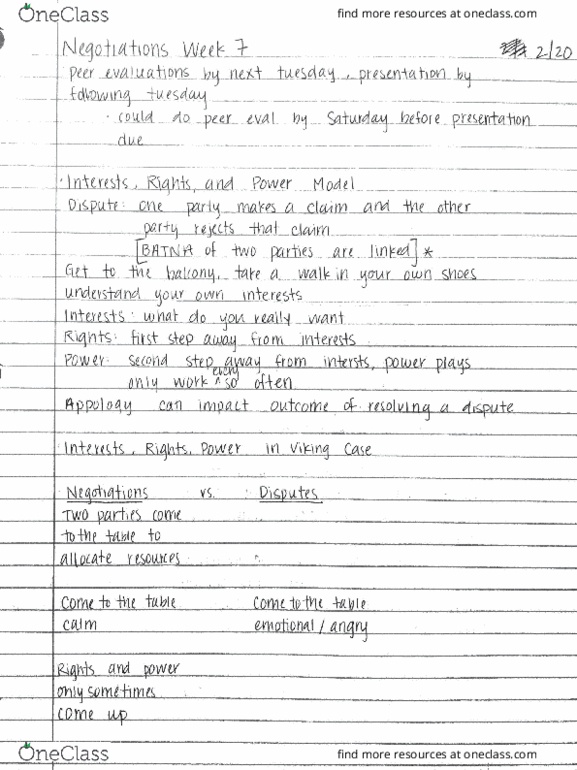 OneClass find more resources at oneclass.com
Negotiations Week 7 2/20
peer evaluations by next tuesday, presentation by
following tuesday
· could do peer eval by Saturday before presentation
due
· Interests, Rights, and Power Model
Dispute: one party makes a claim and the other
party rejects that claim
[BATNA of two parties are linked] *
Get to the balcony, take a walk in your own shoes
understand your own interests
Interests: what do you really want
Rights: first step away from interests
Power: second step away from intersts, power plays
only work every so often
Appology can impact outcome of resolving a dispute
· Interests, Rights, Power in Viking Case
Negotiations vs. Disputes
Two parties come
to the table to
allocate resources
Come to the table Come to the table
calm emotional / angry
Rights and power
only sometimes
come up
OneClass find more resources at oneclass.com